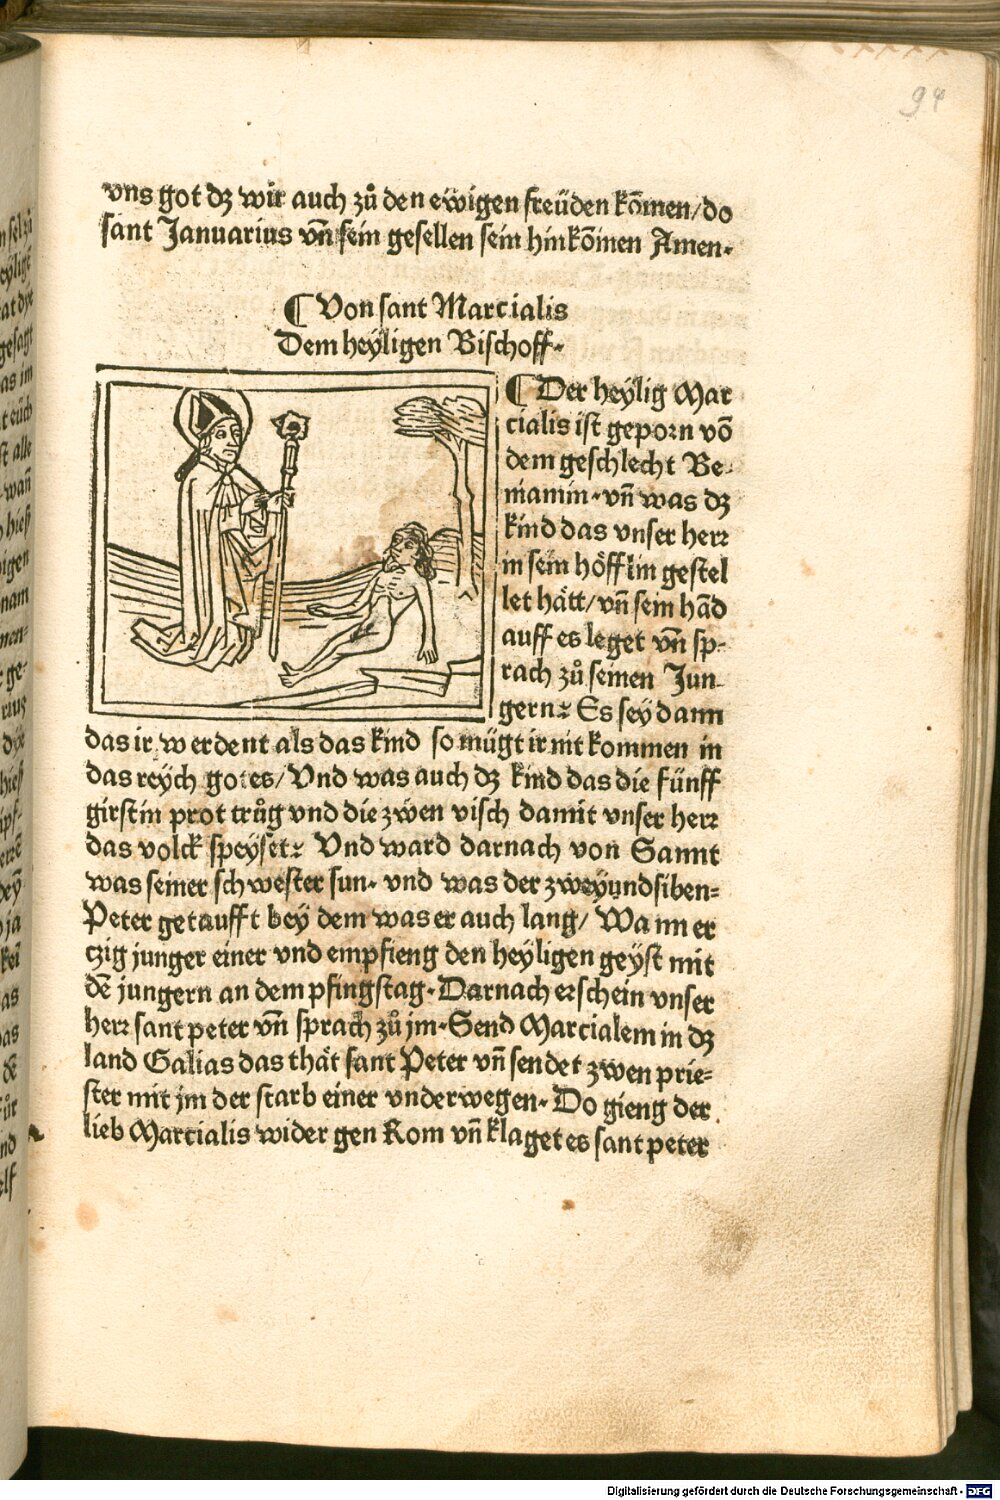 94
vns got dz wir auch zů den ewigen freüden kōmen/do
sant Januarius vn̄ sein gesellen sein hin kōmen Amen.
¶ Von sant Marcialis
Dem heÿligen Bischoff.
¶ Der heÿlig Mar
cialis ist geporn vō
dem geschlecht Be-
niamin. vn̄ was dz
kind das vnser herr
in sein höfflin gestel
let hätt/vn̄ sein hād
auff es leget vn̄ sp-
rach zů seinen Jun-
gern: Es seÿ dann
das ir werdent als das kind so mügt ir nit kommen in
das reÿch gotes/ Vnd was auch dz kind das die fünff
girstin prot trůg vnd die zwen visch damit vnser herr
das volck speÿset: Vnd ward darnach von Sannt
was seiner schwester sun. vnd was der zweÿundsiben-
Peter getaufft beÿ dem was er auch lang/ Wann er
czig junger einer vnd empfieng den heÿligen geÿst mit
dē jungern an dem pfingstag. Darnach erschein vnser
herr sant peter vn̄ sprach zů jm. Send Marcialem in dz
land Galias das thät sant Peter vn̄ sendet zwen prie-
ster mit jm der starb einer vnderwegen. Do gieng der
lieb Marcialis wider gen Rom vn̄ klaget es sant peter
Digitalisierung gefördert durch die Deutsche Forschungsgemeinschaft - DFG